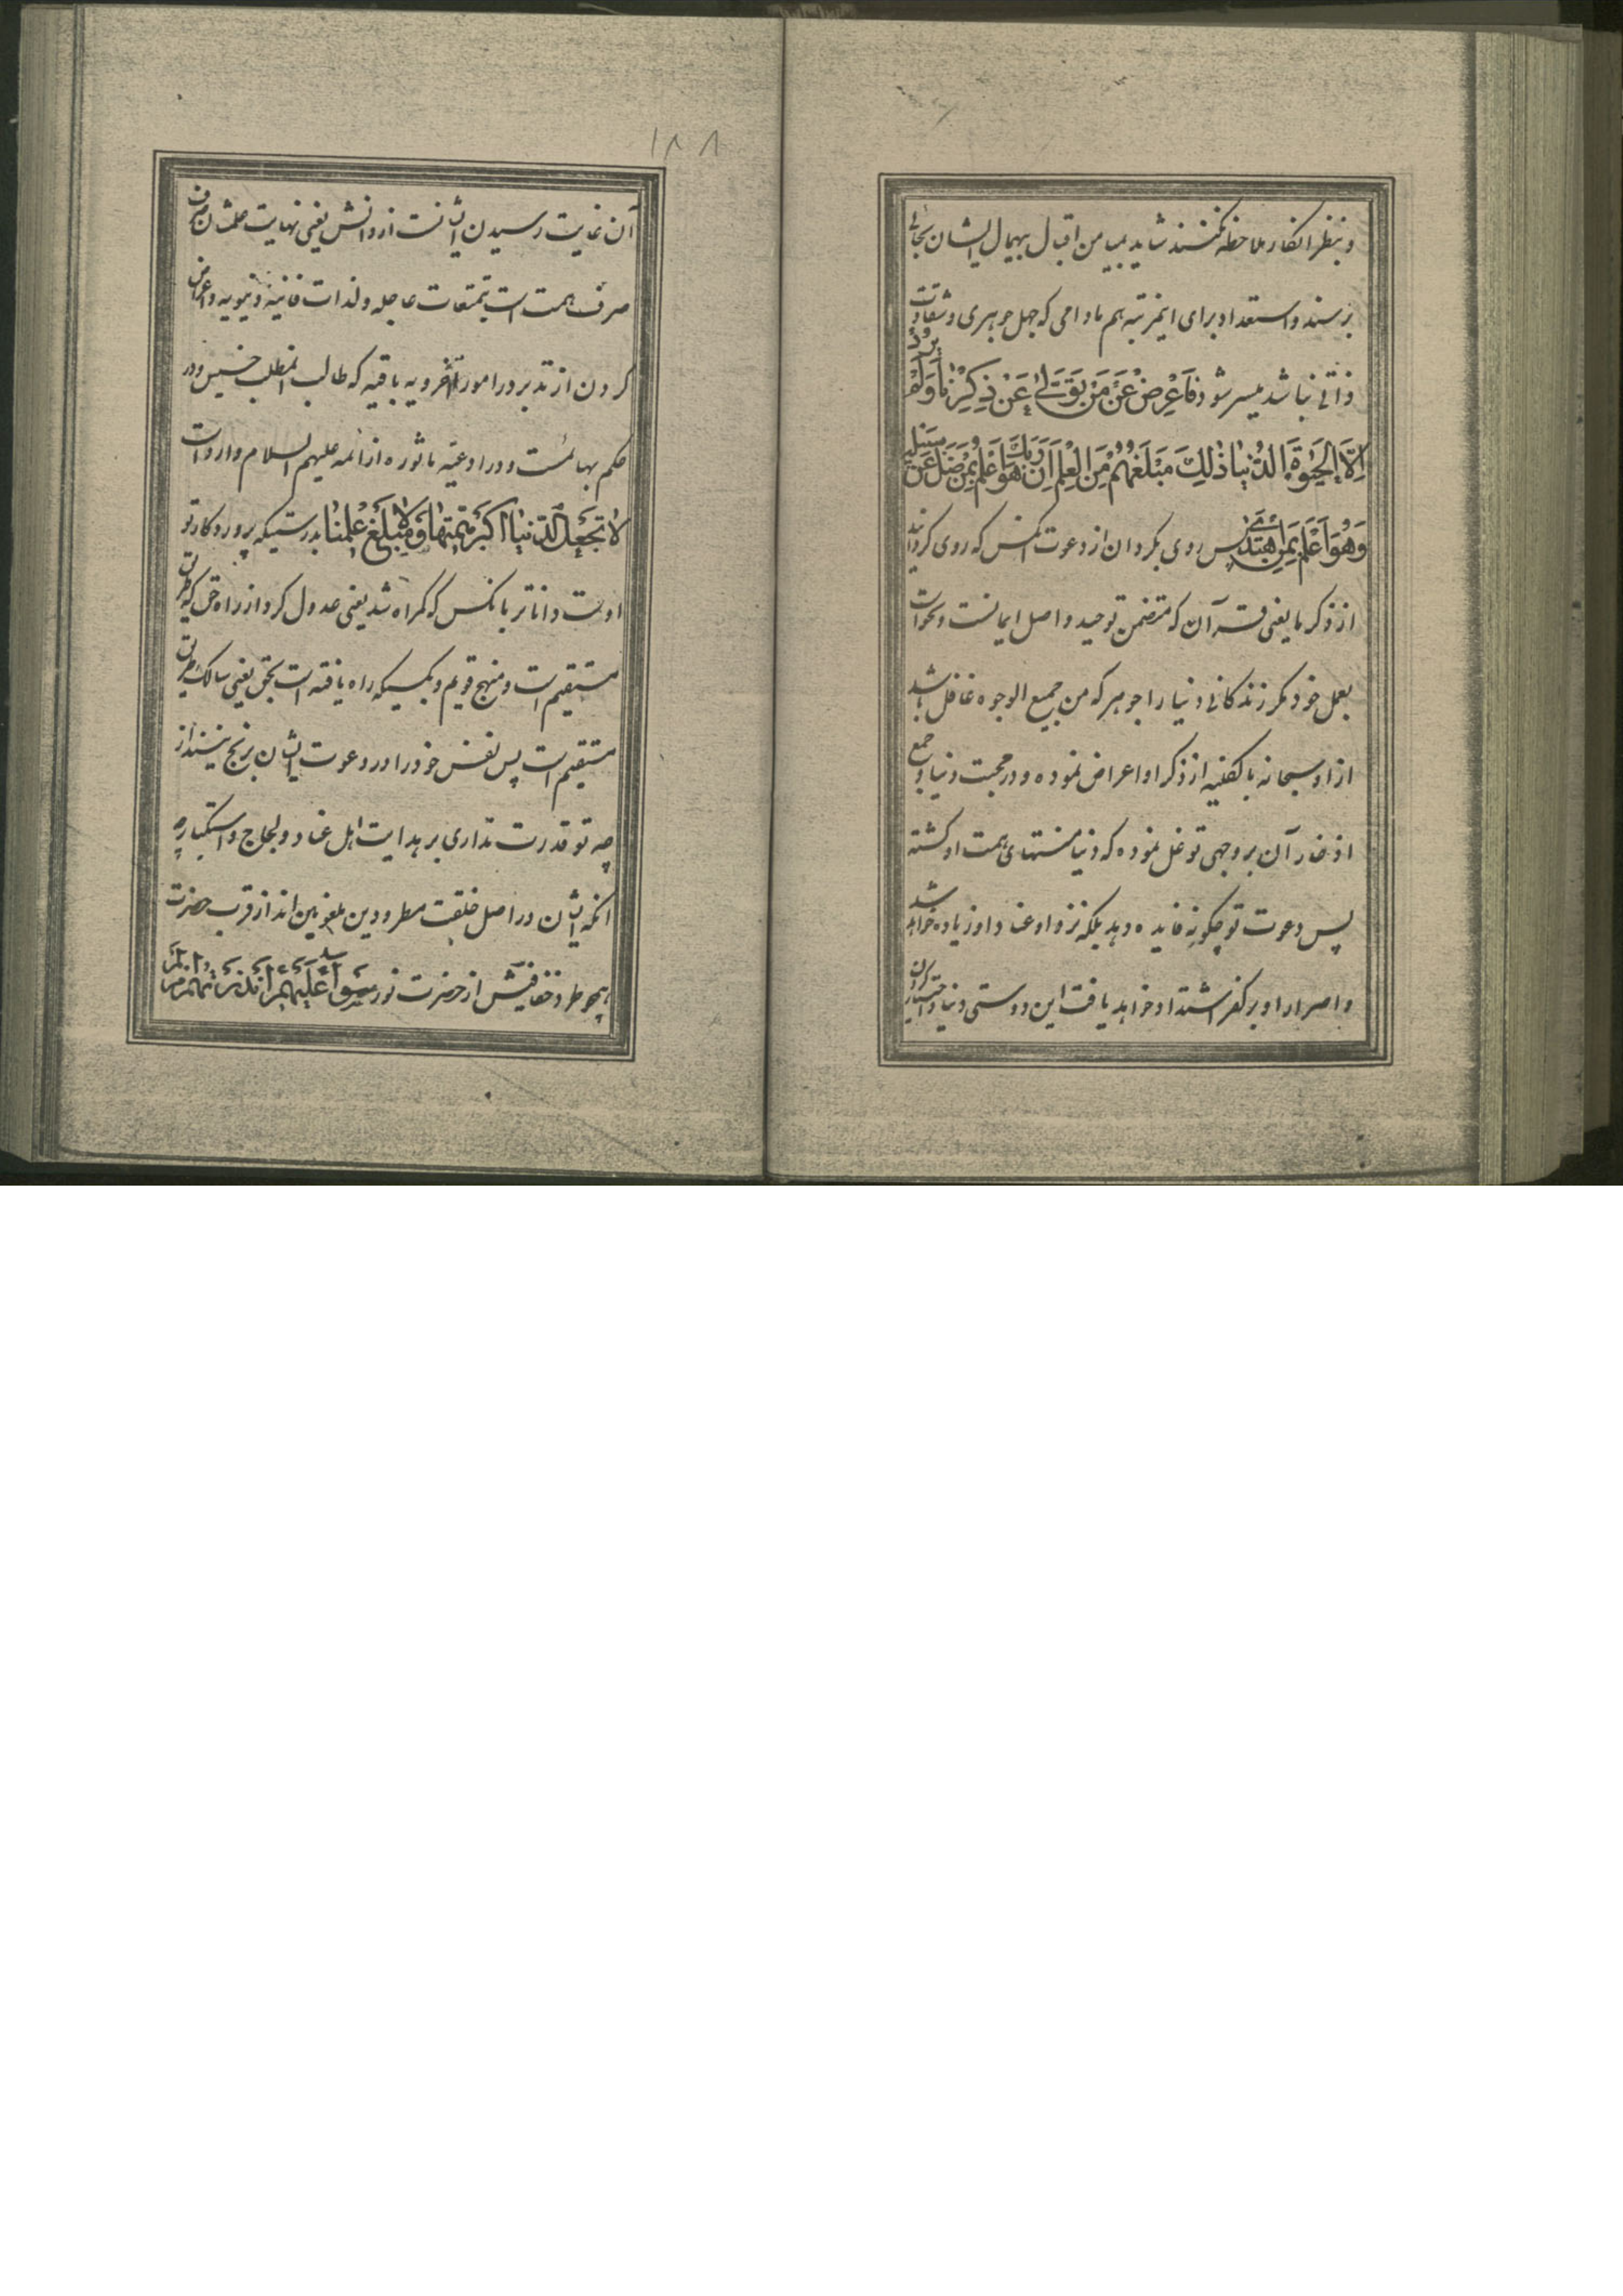 و بنظر انکار ملاحظه نکنند شاید بمیامن اقبال بهیمال ایشان بجائی
برسند و استعداد برای اینمرتبه هم مادامی که جهل جوهری و شقاوت
ذاتی نباشد میسر شود فَاَعْرِضْ عَنْ مَنْ تَوَلّٰى عَنْ ذِكْرِنٰا وَلَمْ يُرِدْ
اِلَّا الْحَيٰوةَ الدُّنْيٰا ذٰلِكَ مَبْلَغُهُمْ مِنَ الْعِلْمِ اِنَّ رَبَّكَ هُوَ اَعْلَمُ بِمَنْ ضَلَّ عَنْ سَبِيلِهِ
وَهُوَ اَعْلَمُ بِمَنِ اهْتَدٰى پس روی بگردان از دعوت آنکس که روی گردانید
از ذکر ما یعنی قرآن که متضمن توحید و اصل ایمانست و نخواست
بعمل خود مگر زندگانی دنیا را چو هر که من جمیع الوجوه غافل باشد
از او سبحانه بالکلیه از ذکر او اعراض نموده و در محبت دنیا و جمع
اذخار آن بر وجهی توغل نموده که دنیا منتهای همت او گشته
پس دعوت تو چگونه فایده دهد بلکه نزد او عناد او زیاده خواهد شد
و اصرار او بر کفر اشتداد خواهد یافت این دوستی دنیا و اختیار کردن
۱۸۸
آن غایت رسیدن ایشانست از دانش یعنی نهایت علمشان صرف
صرف همت است بتمتعات عاجله و لذات فانیه دنیویه و اعراض
کردن از تدبر در امور اخرویه باقیه که طالب انمطلب خسیس و در
حکم بهائمست و در ادعیه ماثوره از ائمه علیهم السلام وارد است
لا تَجْعَلِ الدُّنْيٰا اَكْبَرَ هَمِّنٰا وَلا مَبْلَغَ عِلْمِنٰا بدرستیکه پروردگار تو
اوست داناتر بانکس که گمراه شد یعنی عدول کرد از راه حق که طریق
مستقیم است و منهج قویم و بکسیکه راه یافته است بحق یعنی سالک طریق
مستقیم است پس نفس خود را در دعوت ایشان برنج مینداز
چه تو قدرت نداری بر هدایت اهل عناد و لجاج و استکبار چه
انکه ایشان در اصل خلقت مطرودین ملعونین اند از قرب حضرت
همچو طرد خفافیش از حضرت نور سَوٰاءٌ عَلَيْهِمْ ءَاَنْذَرْتَهُمْ اَمْ لَمْ